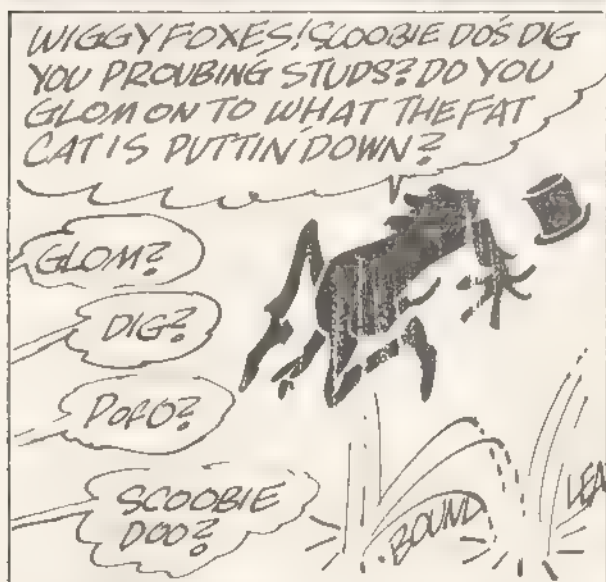 WIGGY FOXES! SCOOBIE DO'S DIG
YOU PROUBING STUDS? DO YOU
GLOM ON TO WHAT THE FAT
CAT IS PUTTIN' DOWN?
GLOM?
DIG?
POFO?
SCOOBIE
DOO?
BOUND
LEA